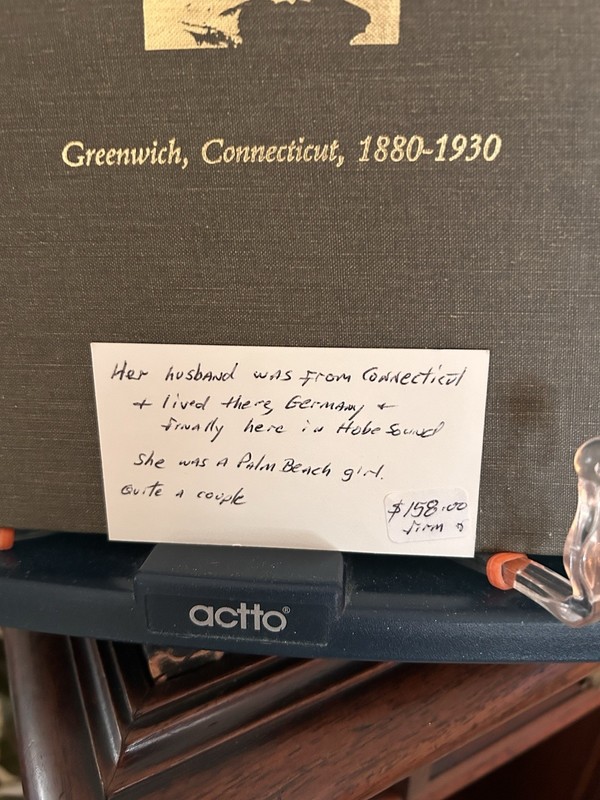 Greenwich, Connecticut, 1880-1930
Her husband was from Connecticut
+ lived there, Germany +
finally here in Hobe Sound
She was a Palm Beach girl.
Quite a couple
$158.00
firm
actto®